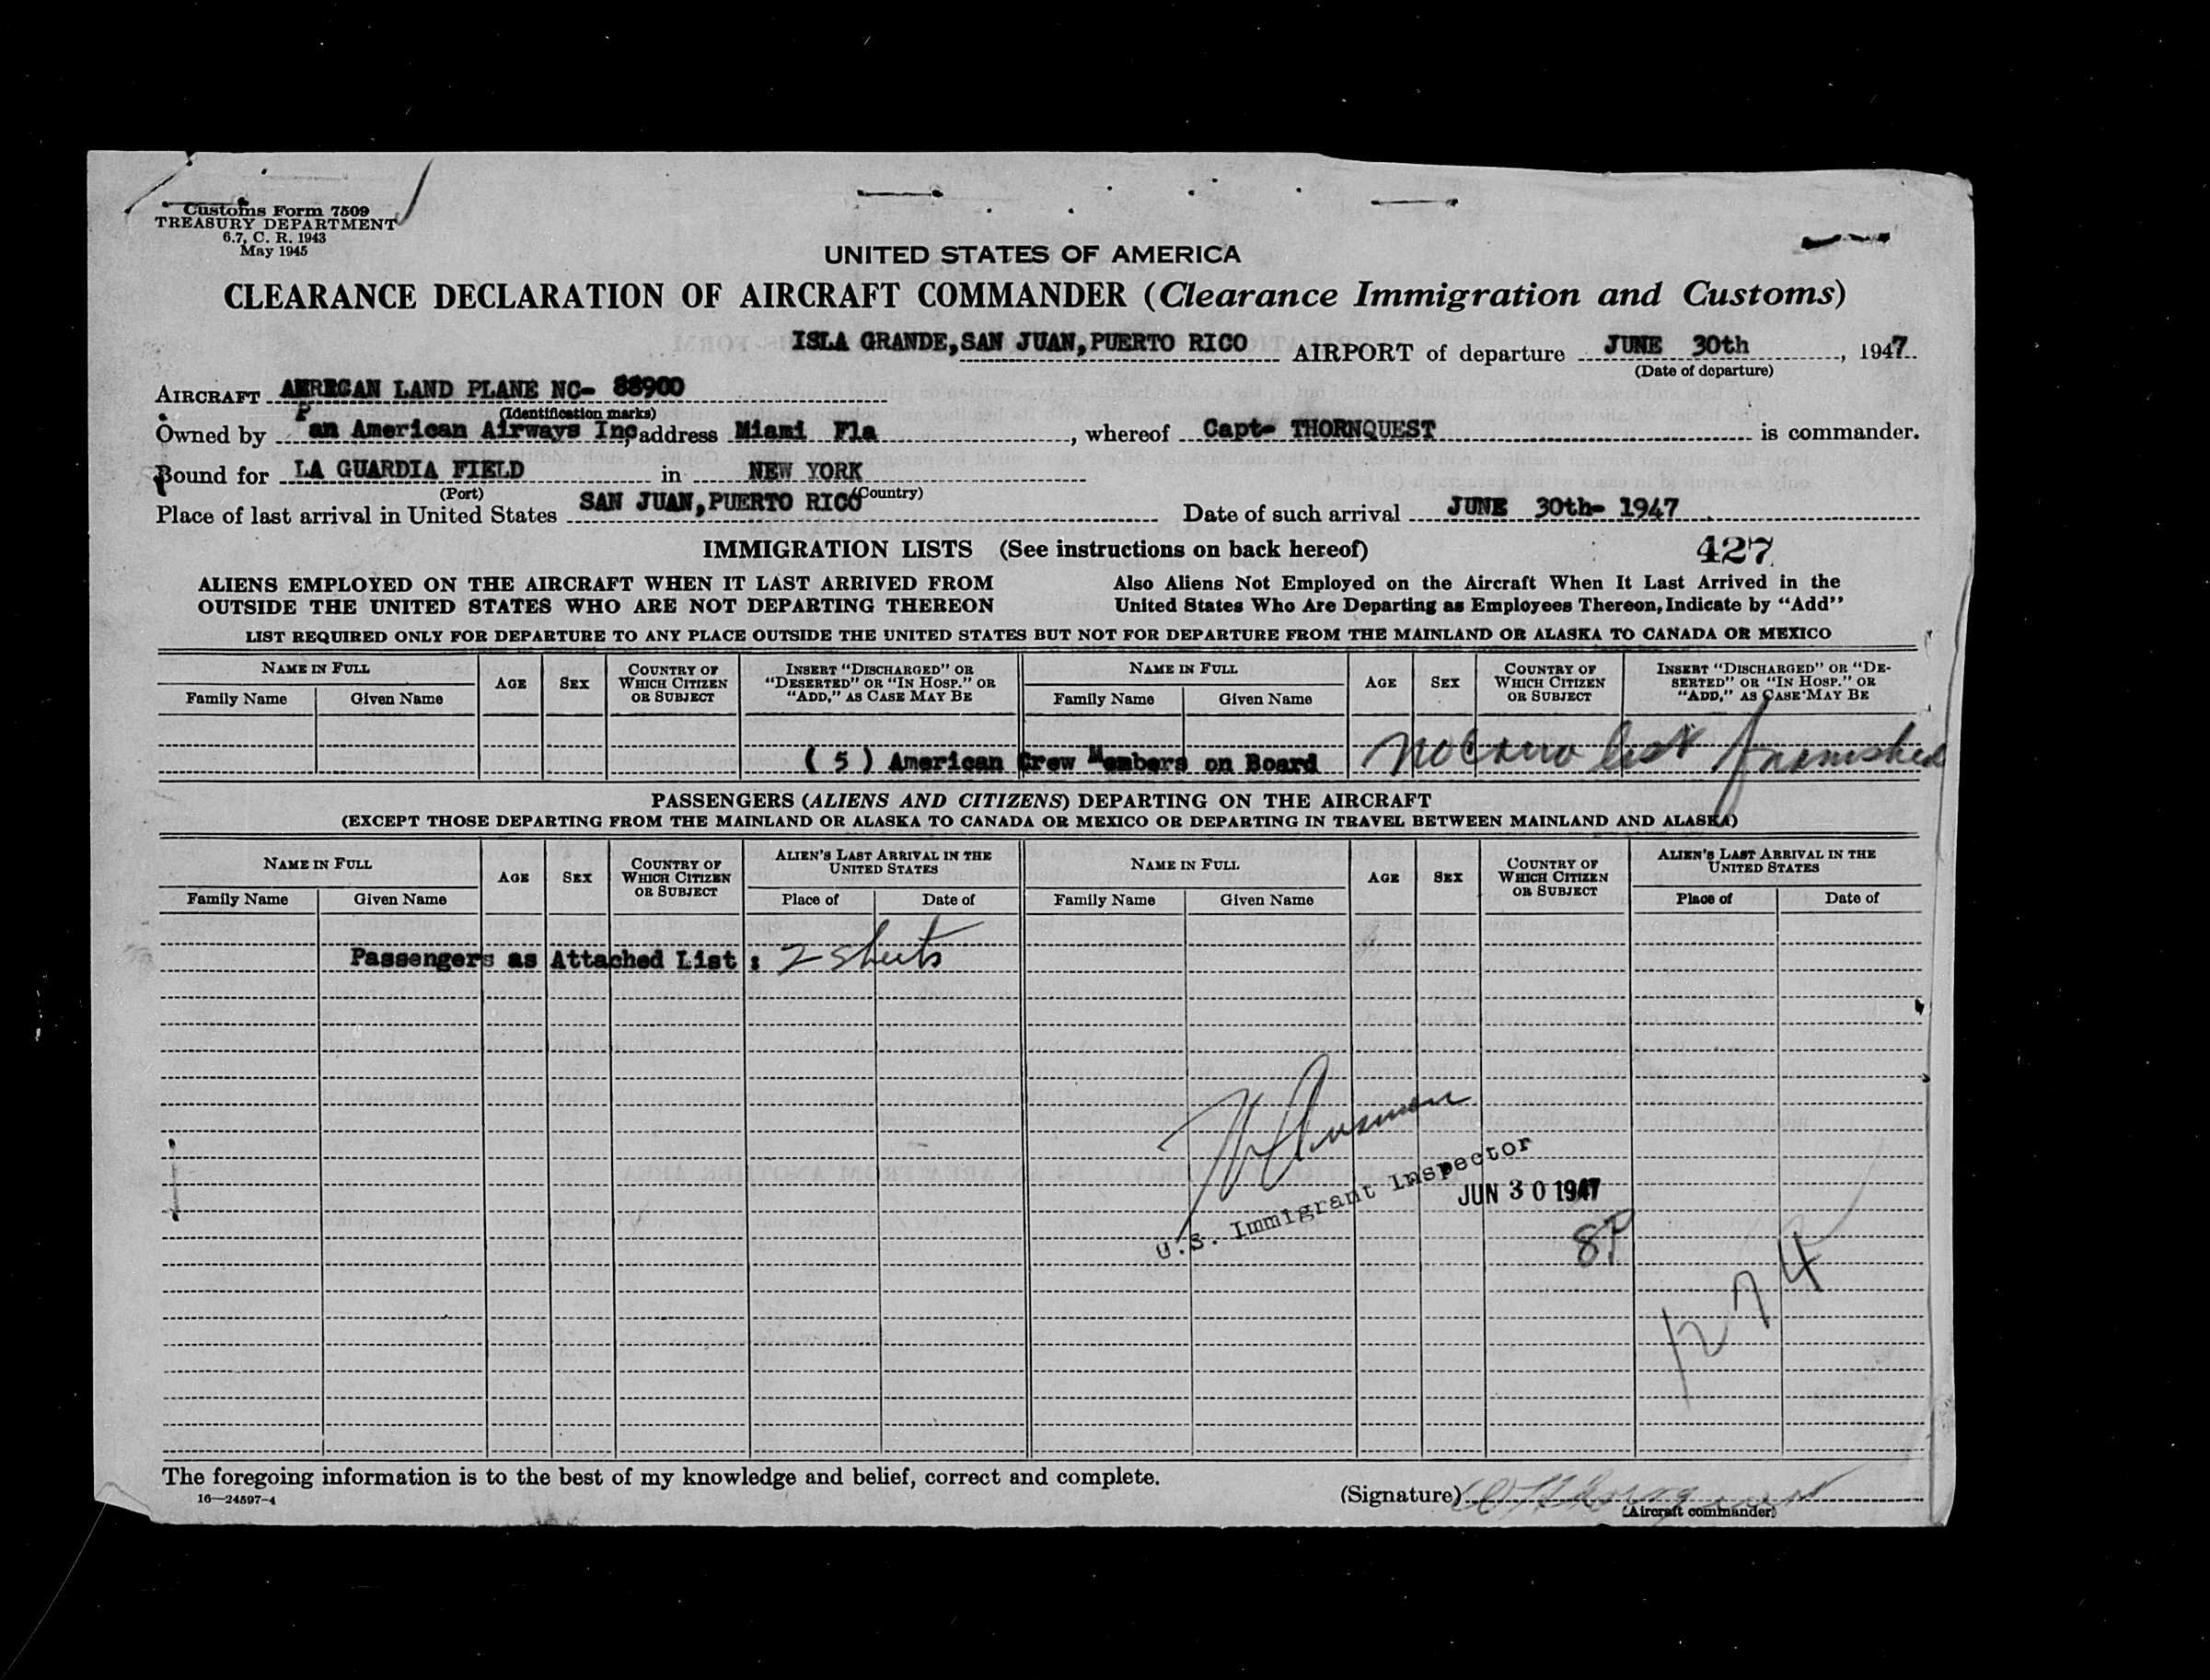 Customs Form 7509
TREASURY DEPARTMENT
6.7, C. R. 1943
May 1945
UNITED STATES OF AMERICA
CLEARANCE DECLARATION OF AIRCRAFT COMMANDER (Clearance Immigration and Customs)
ISLA GRANDE, SAN JUAN, PUERTO RICO AIRPORT of departure JUNE 30th, 1947
(Date of departure)
AIRCRAFT LAND PLANE NC- 88900
(Identification marks)
Owned by Pan American Airways Inc address Miami Fla, whereof Capt- THORNQUEST is commander.
Bound for LA GUARDIA FIELD in NEW YORK
(Port) (Country)
Place of last arrival in United States SAN JUAN, PUERTO RICO Date of such arrival JUNE 30th- 1947
IMMIGRATION LISTS (See instructions on back hereof) 427
ALIENS EMPLOYED ON THE AIRCRAFT WHEN IT LAST ARRIVED FROM
OUTSIDE THE UNITED STATES WHO ARE NOT DEPARTING THEREON
Also Aliens Not Employed on the Aircraft When It Last Arrived in the
United States Who Are Departing as Employees Thereon, Indicate by "Add"
LIST REQUIRED ONLY FOR DEPARTURE TO ANY PLACE OUTSIDE THE UNITED STATES BUT NOT FOR DEPARTURE FROM THE MAINLAND OR ALASKA TO CANADA OR MEXICO
NAME IN FULL
Family Name Given Name
AGE
SEX
COUNTRY OF
WHICH CITIZEN
OR SUBJECT
INSERT "DISCHARGED" OR
"DESERTED" OR "IN HOSP." OR
"ADD," AS CASE MAY BE
NAME IN FULL
Family Name Given Name
AGE
SEX
COUNTRY OF
WHICH CITIZEN
OR SUBJECT
INSERT "DISCHARGED" OR "DE-
SERTED" OR "IN HOSP." OR
"ADD," AS CASE MAY BE
( 5 ) American Crew Members on Board No crew list furnished
PASSENGERS (ALIENS AND CITIZENS) DEPARTING ON THE AIRCRAFT
(EXCEPT THOSE DEPARTING FROM THE MAINLAND OR ALASKA TO CANADA OR MEXICO OR DEPARTING IN TRAVEL BETWEEN MAINLAND AND ALASKA)
NAME IN FULL
Family Name Given Name
AGE
SEX
COUNTRY OF
WHICH CITIZEN
OR SUBJECT
ALIEN'S LAST ARRIVAL IN THE
UNITED STATES
Place of Date of
NAME IN FULL
Family Name Given Name
AGE
SEX
COUNTRY OF
WHICH CITIZEN
OR SUBJECT
ALIEN'S LAST ARRIVAL IN THE
UNITED STATES
Place of Date of
Passengers as Attached List : 2 sheets
U.S. Immigrant Inspector
JUN 30 1947
8P
The foregoing information is to the best of my knowledge and belief, correct and complete.
16—24597-4
(Signature)
(Aircraft commander)